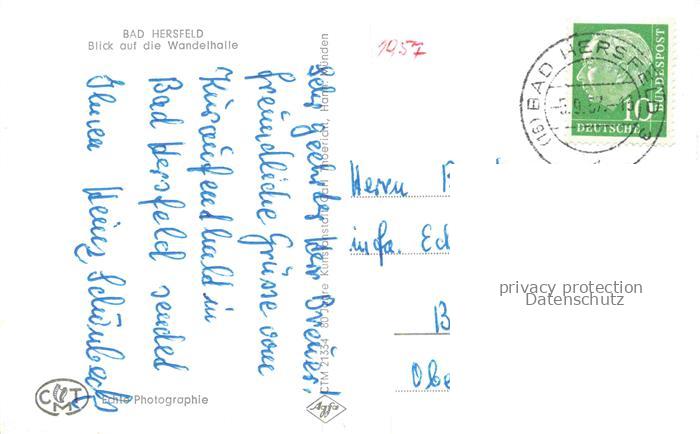 BAD HERSFELD
Blick auf die Wandelhalle
Sehr geehrter Herr Breuer!
freundliche Grüsse vom
Kuraufenthalt in
Bad Hersfeld sendet
Ihnen Heinz Schönbeck
CTM
Echte Photographie
CTM 21334 80 Jahre Kunstanstalt Carl Thoericht, Hann. Münden
Agfa
1957
(16) BAD HERSFELD
5.9.57
10
DEUTSCHE
BUNDESPOST
Herrn
in fa.
privacy protection
Datenschutz